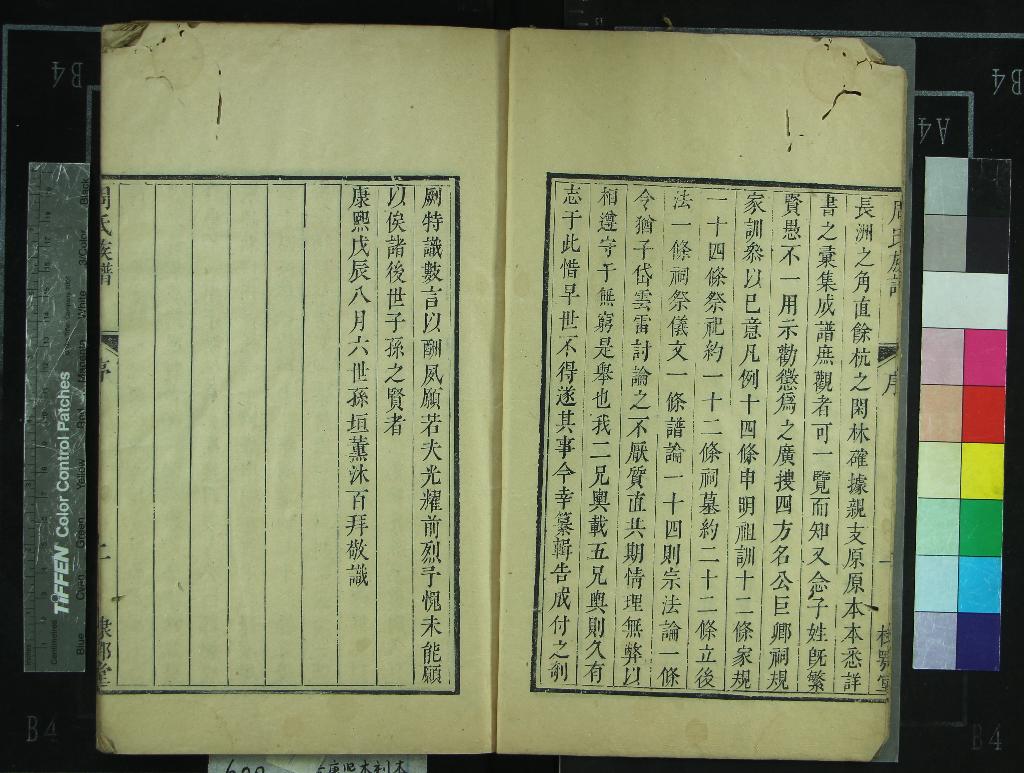 周氏族譜
序
長洲之角直餘杭之閑林確據親支原原本本悉詳
書之彙集成譜庶觀者可一覽而知又念子姓旣繁
賢愚不一用示勸懲爲之廣搜四方名公巨卿祠規
家訓叅以已意凡例十四條申明祖訓十二條家規
一十四條祭祀約一十二條祠墓約二十二條立後
法一條祠祭儀文一條譜論一十四則宗法論一條
令猶子岱雲雷討論之不厭質直共期情理無弊以
相遵守于無窮是舉也我二兄輿載五兄輿則久有
志于此惜早世不得遂其事今幸纂輯告成付之剞
劂特識數言以酬夙願若夫光耀前烈予愧未能願
以俟諸後世子孫之賢者
康熙戊辰八月六世孫垣薰沐百拜敬識
周氏族譜
序
二
棣鄂堂
TIFFEN Color Control Patches
Centimetres
Blue
Cyan
Green
Yellow
Red
Magenta
White
3/Color
Black
B4
B4
A4
B4
B4